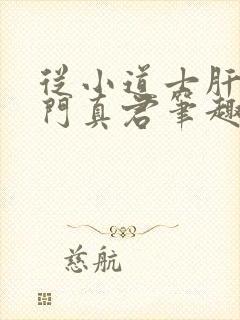 從小道士肝
門真君筆趣
慈航